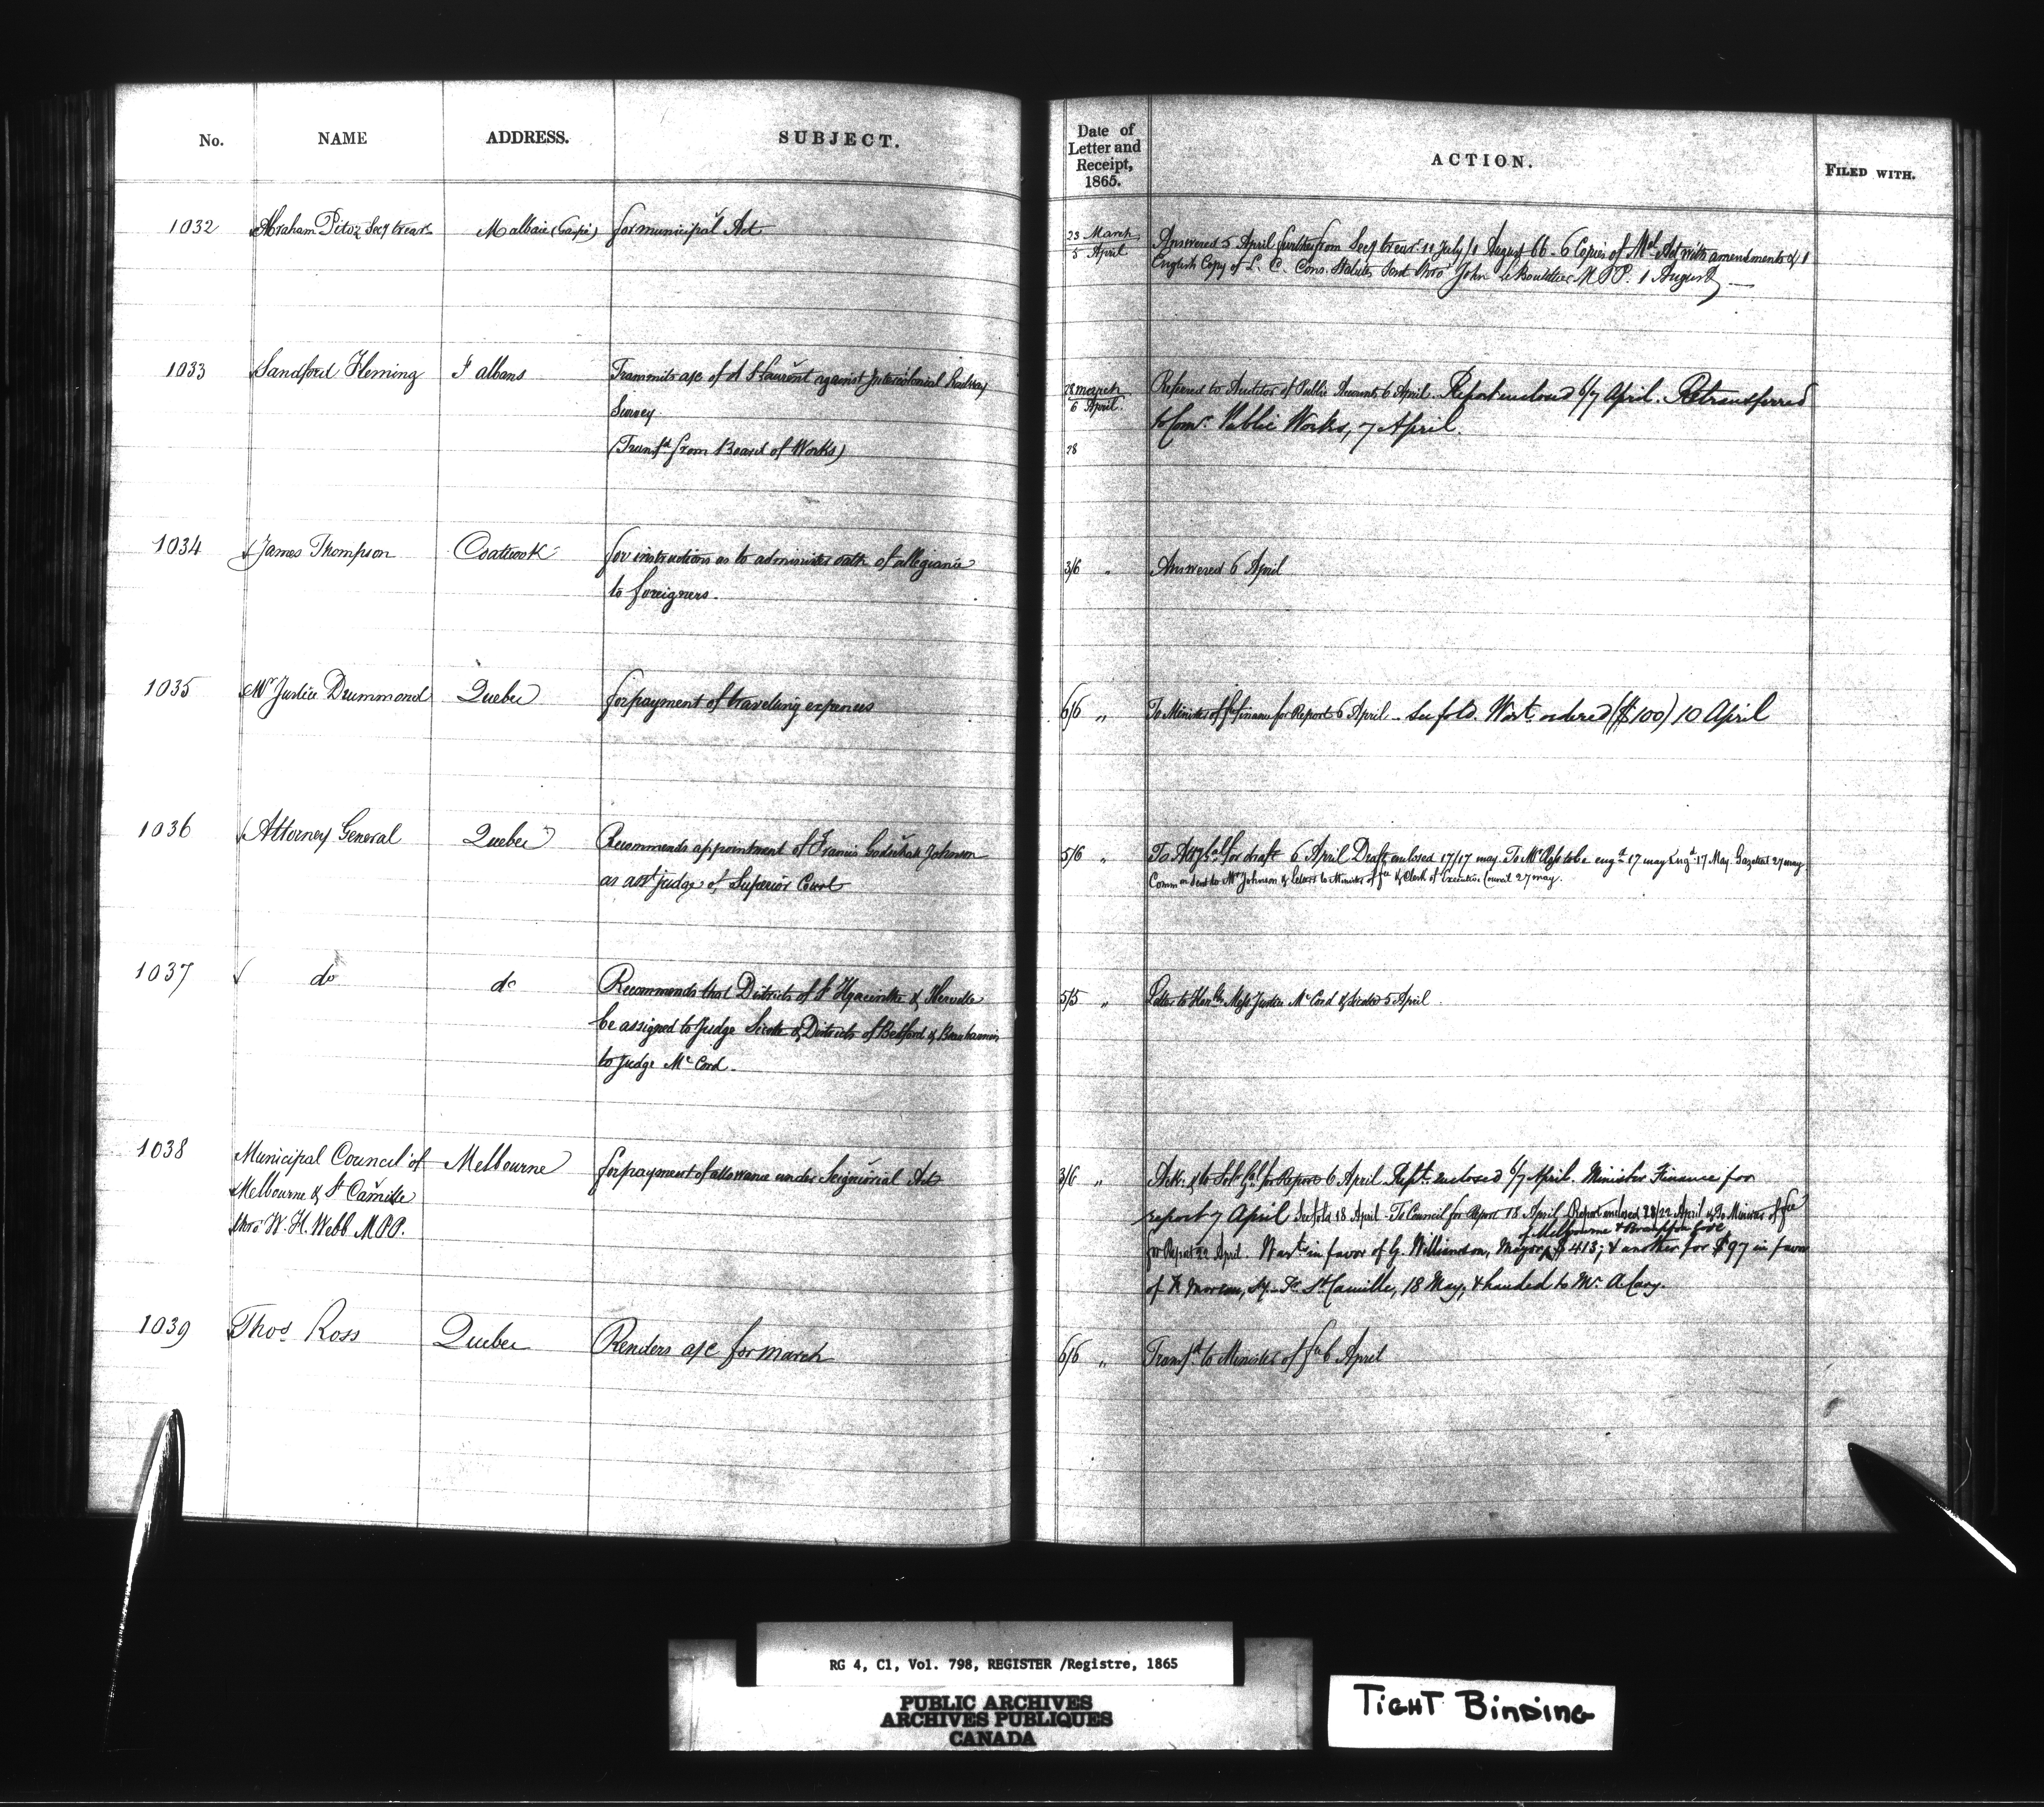 No. NAME ADDRESS. SUBJECT.
Date of
Letter and
Receipt,
1865.
ACTION.
FILED WITH.
1032 Abraham Secy treasr Malbaie (Gaspé) for municipal Act
23 March
5 April
Answered 5 April further from Secy treasr 11 July/1 August 66 - 6 Copies of Act with amendments & 1
English Copy of L. C. Cons. Statutes sent thro' John Le Boutillier M.P.P. 1 August
1033 Sandford Fleming St albans Transmits a/c of A St Laurent against Intercolonial Railway
Survey
(Transfd from Board of Works)
28 march
6 April
28
Referred to Auditor of Public Accounts 6 April. Report enclosed 6/7 April. Retransferred
to Comr. Public Works, 7 April.
1034 James Thompson Coaticook for instructions as to administer oath of allegiance
to foreigners.
3/6 " Answered 6 April
1035 Mr Justice Drummond Quebec for payment of traveling expenses
6/6 " To Minister of finance for Report 6 April - See fold. Wart. ordered ($100) 10 April
1036 Attorney General Quebec Recommends appointment of Francis Godschall Johnson
as asst judge of Superior Court
5/6 " To Atty Gal for draft 6 April Draft enclosed 17/17 may. To Mr to be engd 17 may Engd 17 May. Gazetted 27 may
Commn sent to Mr Johnson & Letters to Minister of fce & Clerk of Executive Council 27 may.
1037 do do Recommends that Districts of St Hyacinthe & Iberville
be assigned to Judge Sicotte & Districts of Bedford & Beauharnois
to Judge McCord.
5/5 " Letter to Honble Mess Justice McCord & Sicotte 5 April
1038 Municipal Council of
Melbourne & St Camille
thro' W. H. Webb M.P.P.
Melbourne for payment of allowance under Seigniorial Act
3/6 " Ack. & to Solr Gal for Report 6 April Rept. enclosed 6/7 April. Minister Finance for
report 7 April See fold 18 April - To Council for Report 18 April Report enclosed 22/22 April & To Minister of fce
of Melbourne & Brompton Gore
for Report 22 April. Wart in favor of G. Williamson, Mayor, $413; & another for $97 in favor
of Moreau, Sy. Tr. St Camille, 18 May, & handed to Mr.
1039 Thos Ross Quebec Renders a/c for march
6/6 " Transfd to Minister of fce 6 April
RG 4, C1, Vol. 798, REGISTER /Registre, 1865
PUBLIC ARCHIVES
ARCHIVES PUBLIQUES
CANADA
TIGHT BINDING